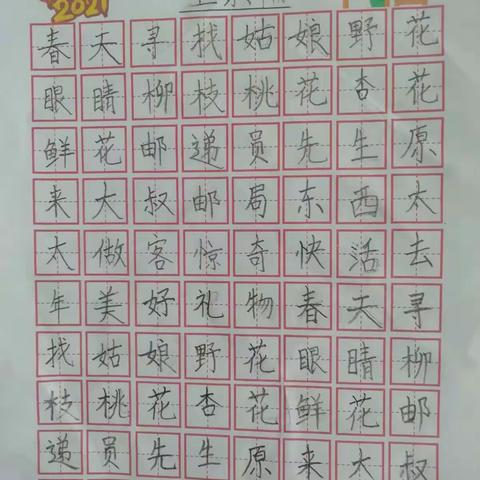 2021
春天寻找姑娘野花
眼睛柳枝桃花杏花
鲜花邮递员先生原
来大叔邮局东西太
太做客惊奇快活去
年美好礼物春天寻
找姑娘野花眼睛柳
枝桃花杏花鲜花邮
递员先生原来大叔